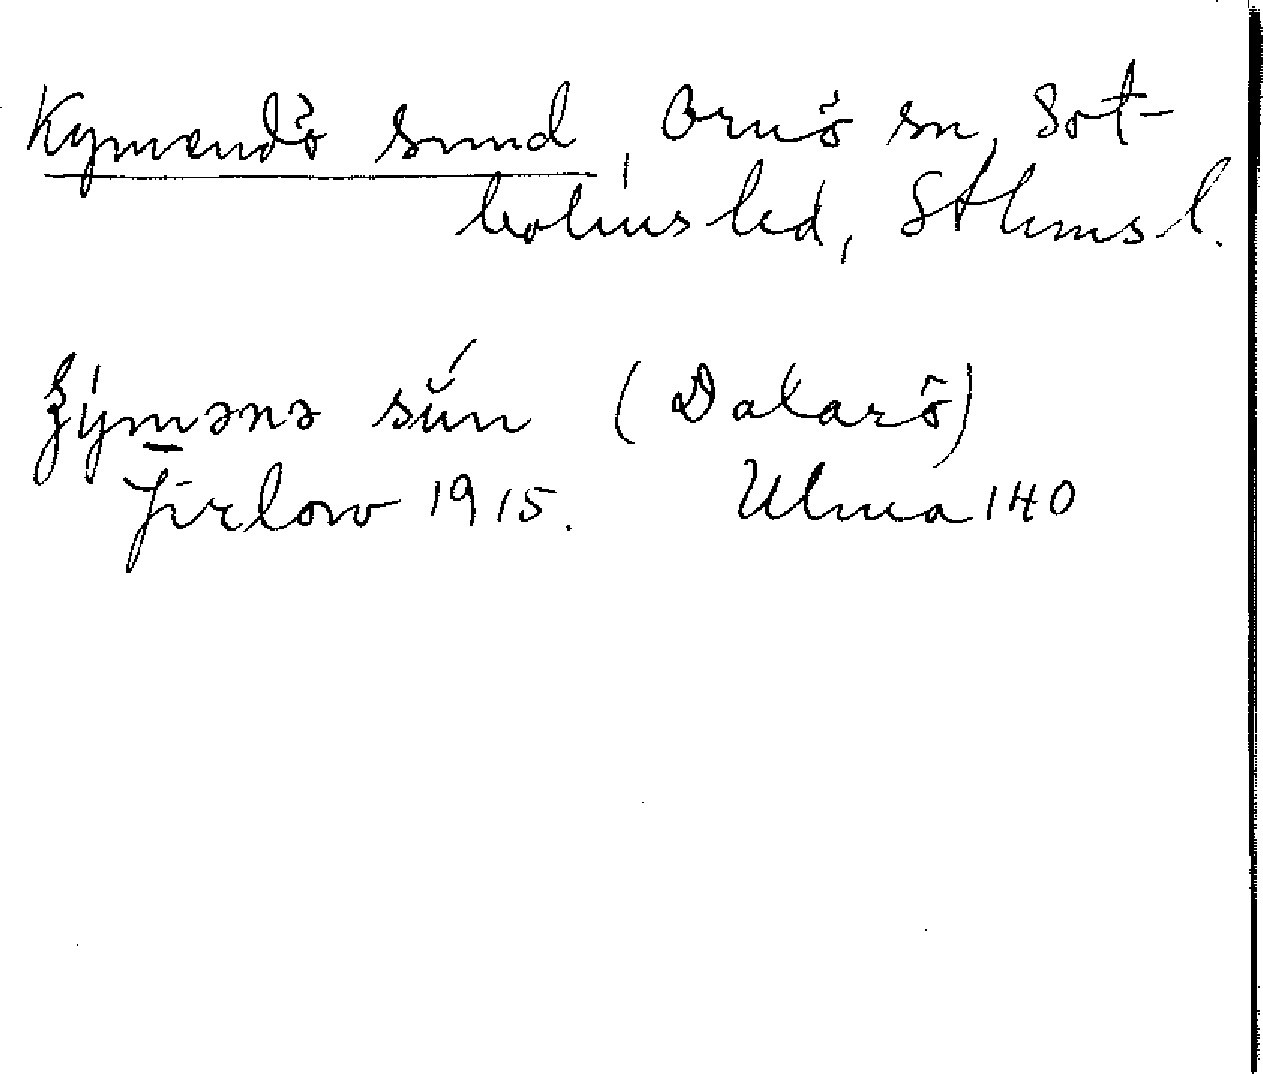 Kymendö sund, Ornö sn, Sot-
holms hd, Sthms l.
ʒým̲ənə sŭ́n (Dalarö)
Jirlow 1915. Ulma 140